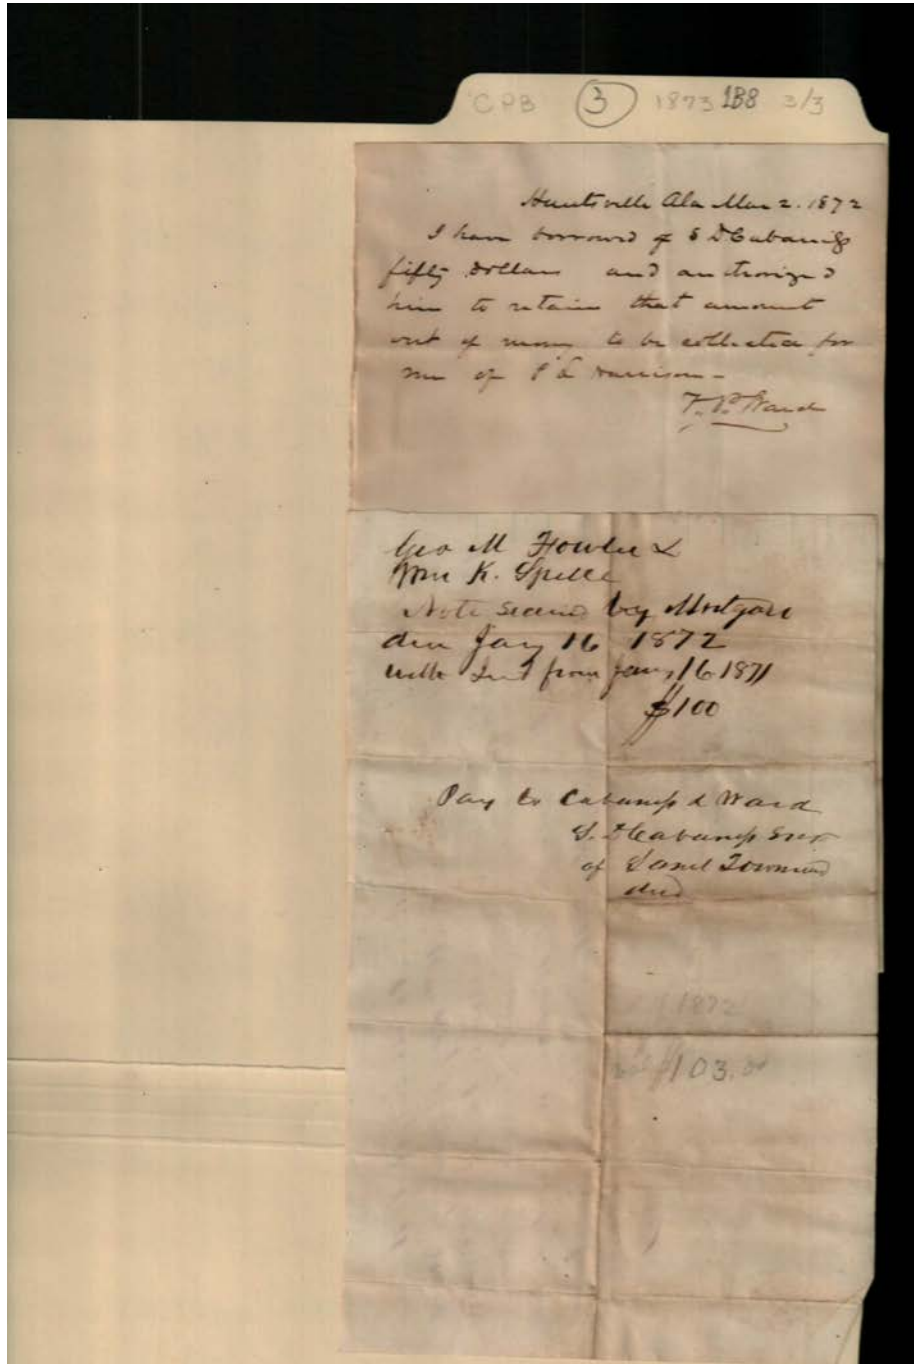 CPB 3 1873 1B8 3/3
Huntsville Ala Mar 2. 1872
I have borrowed of S D Cabaniss
fifty dollars and authorized
him to retain that amount
out of money to be collected for
me of P L Harrison -
T. P. Ward
Geo M Fowler &
Wm K. Spille
Note secured by Mortgare
due Jany 16 1872
with Int from Jany 16 1871
$100
Pay to Cabaniss & Ward
S. D Cabaniss Exor
of Saml Townsend
decd
1872
$103.